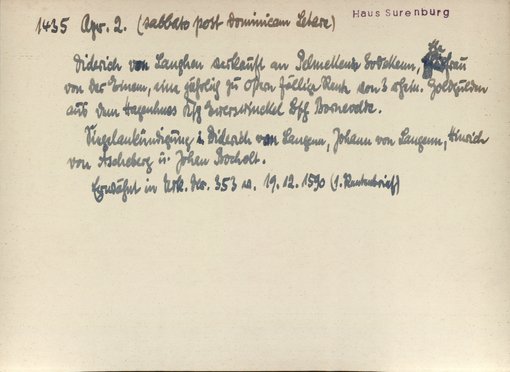 Haus Surenburg
1435 Apr. 2. (sabbato post Dominicam Letare)
Diderich von Langhen verkauft an Telmekens Boddekenn, Ehefrau
von der Emern, eine jährlich zu Ostern fällige Rente von 3 rhein. Goldgulden
aus dem Hagenhues Ksp Everswinckel Bsch
Siegelankündigung: Diderich von Langenn, Johann von Langenn, Hinrich
von Ascheberg u. Johan Bocholt.
Erwähnt in Urk. Nr. 353 v. 19.12.1590 (1. Rentenbrief)